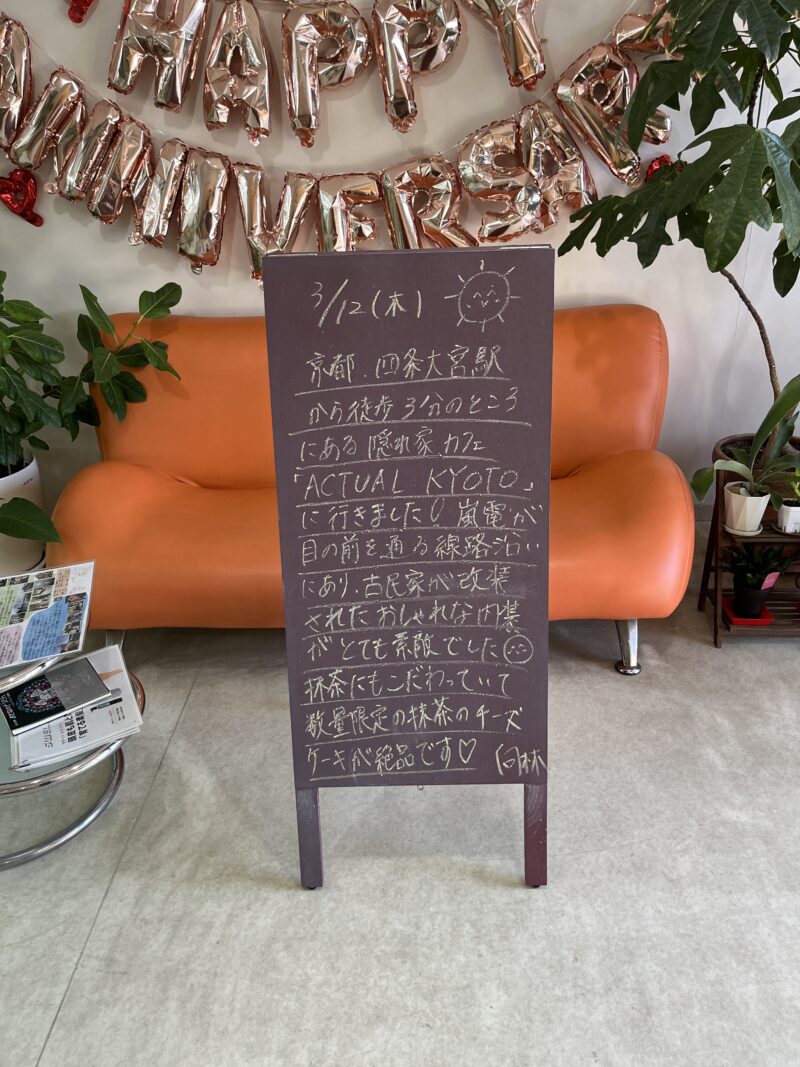 HAPPY
ANNIVERSARY
3/12(木)
京都.四条大宮駅
から徒歩3分のところ
にある隠れ家カフェ
「ACTUAL KYOTO」
に行きました!嵐電が
目の前を通る線路沿い
にあり、古民家が改装
されたおしゃれな内装
がとても素敵でした
抹茶にもこだわっていて
数量限定の抹茶のチーズ
ケーキが絶品です♡